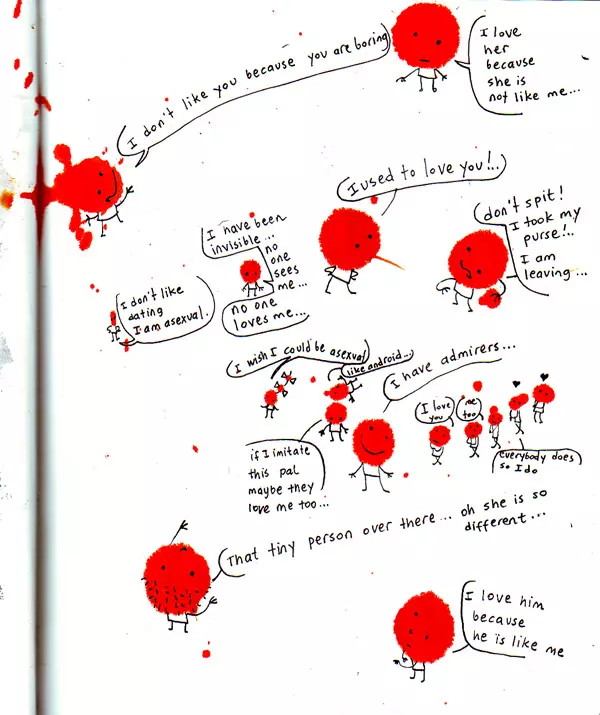 I don't like you because you are boring
I love
her
because
she is
not like me...
I used to love you!..
don't spit!
I took my
purse!..
I am
leaving...
I have been
invisible...
no
one
sees
me...
no one
loves me...
I don't like
dating
I am asexual.
I wish I could be asexual
like android...
I have admirers...
I love
you
me
too
everybody does
so I do
if I imitate
this pal
maybe they
love me too...
That tiny person over there... oh she is so
different...
I love him
because
he is like me